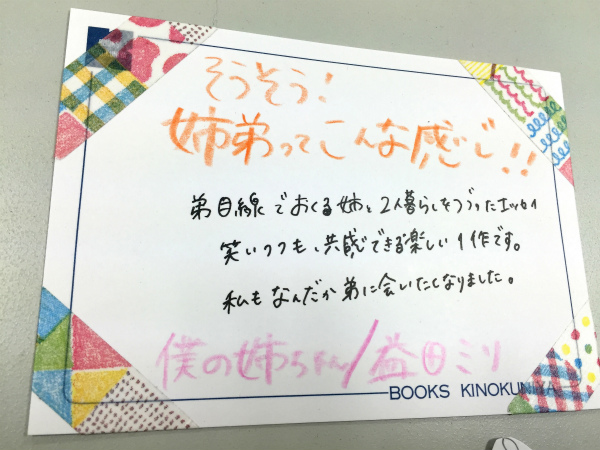 そうそう!
姉弟ってこんな感じ!!
弟目線でおくる姉と2人暮らしをつづったエッセイ
笑いつつも、共感できる楽しい1作です。
私もなんだか弟に会いたくなりました。
僕の姉ちゃん/益田ミリ
BOOKS KINOKUNIYA